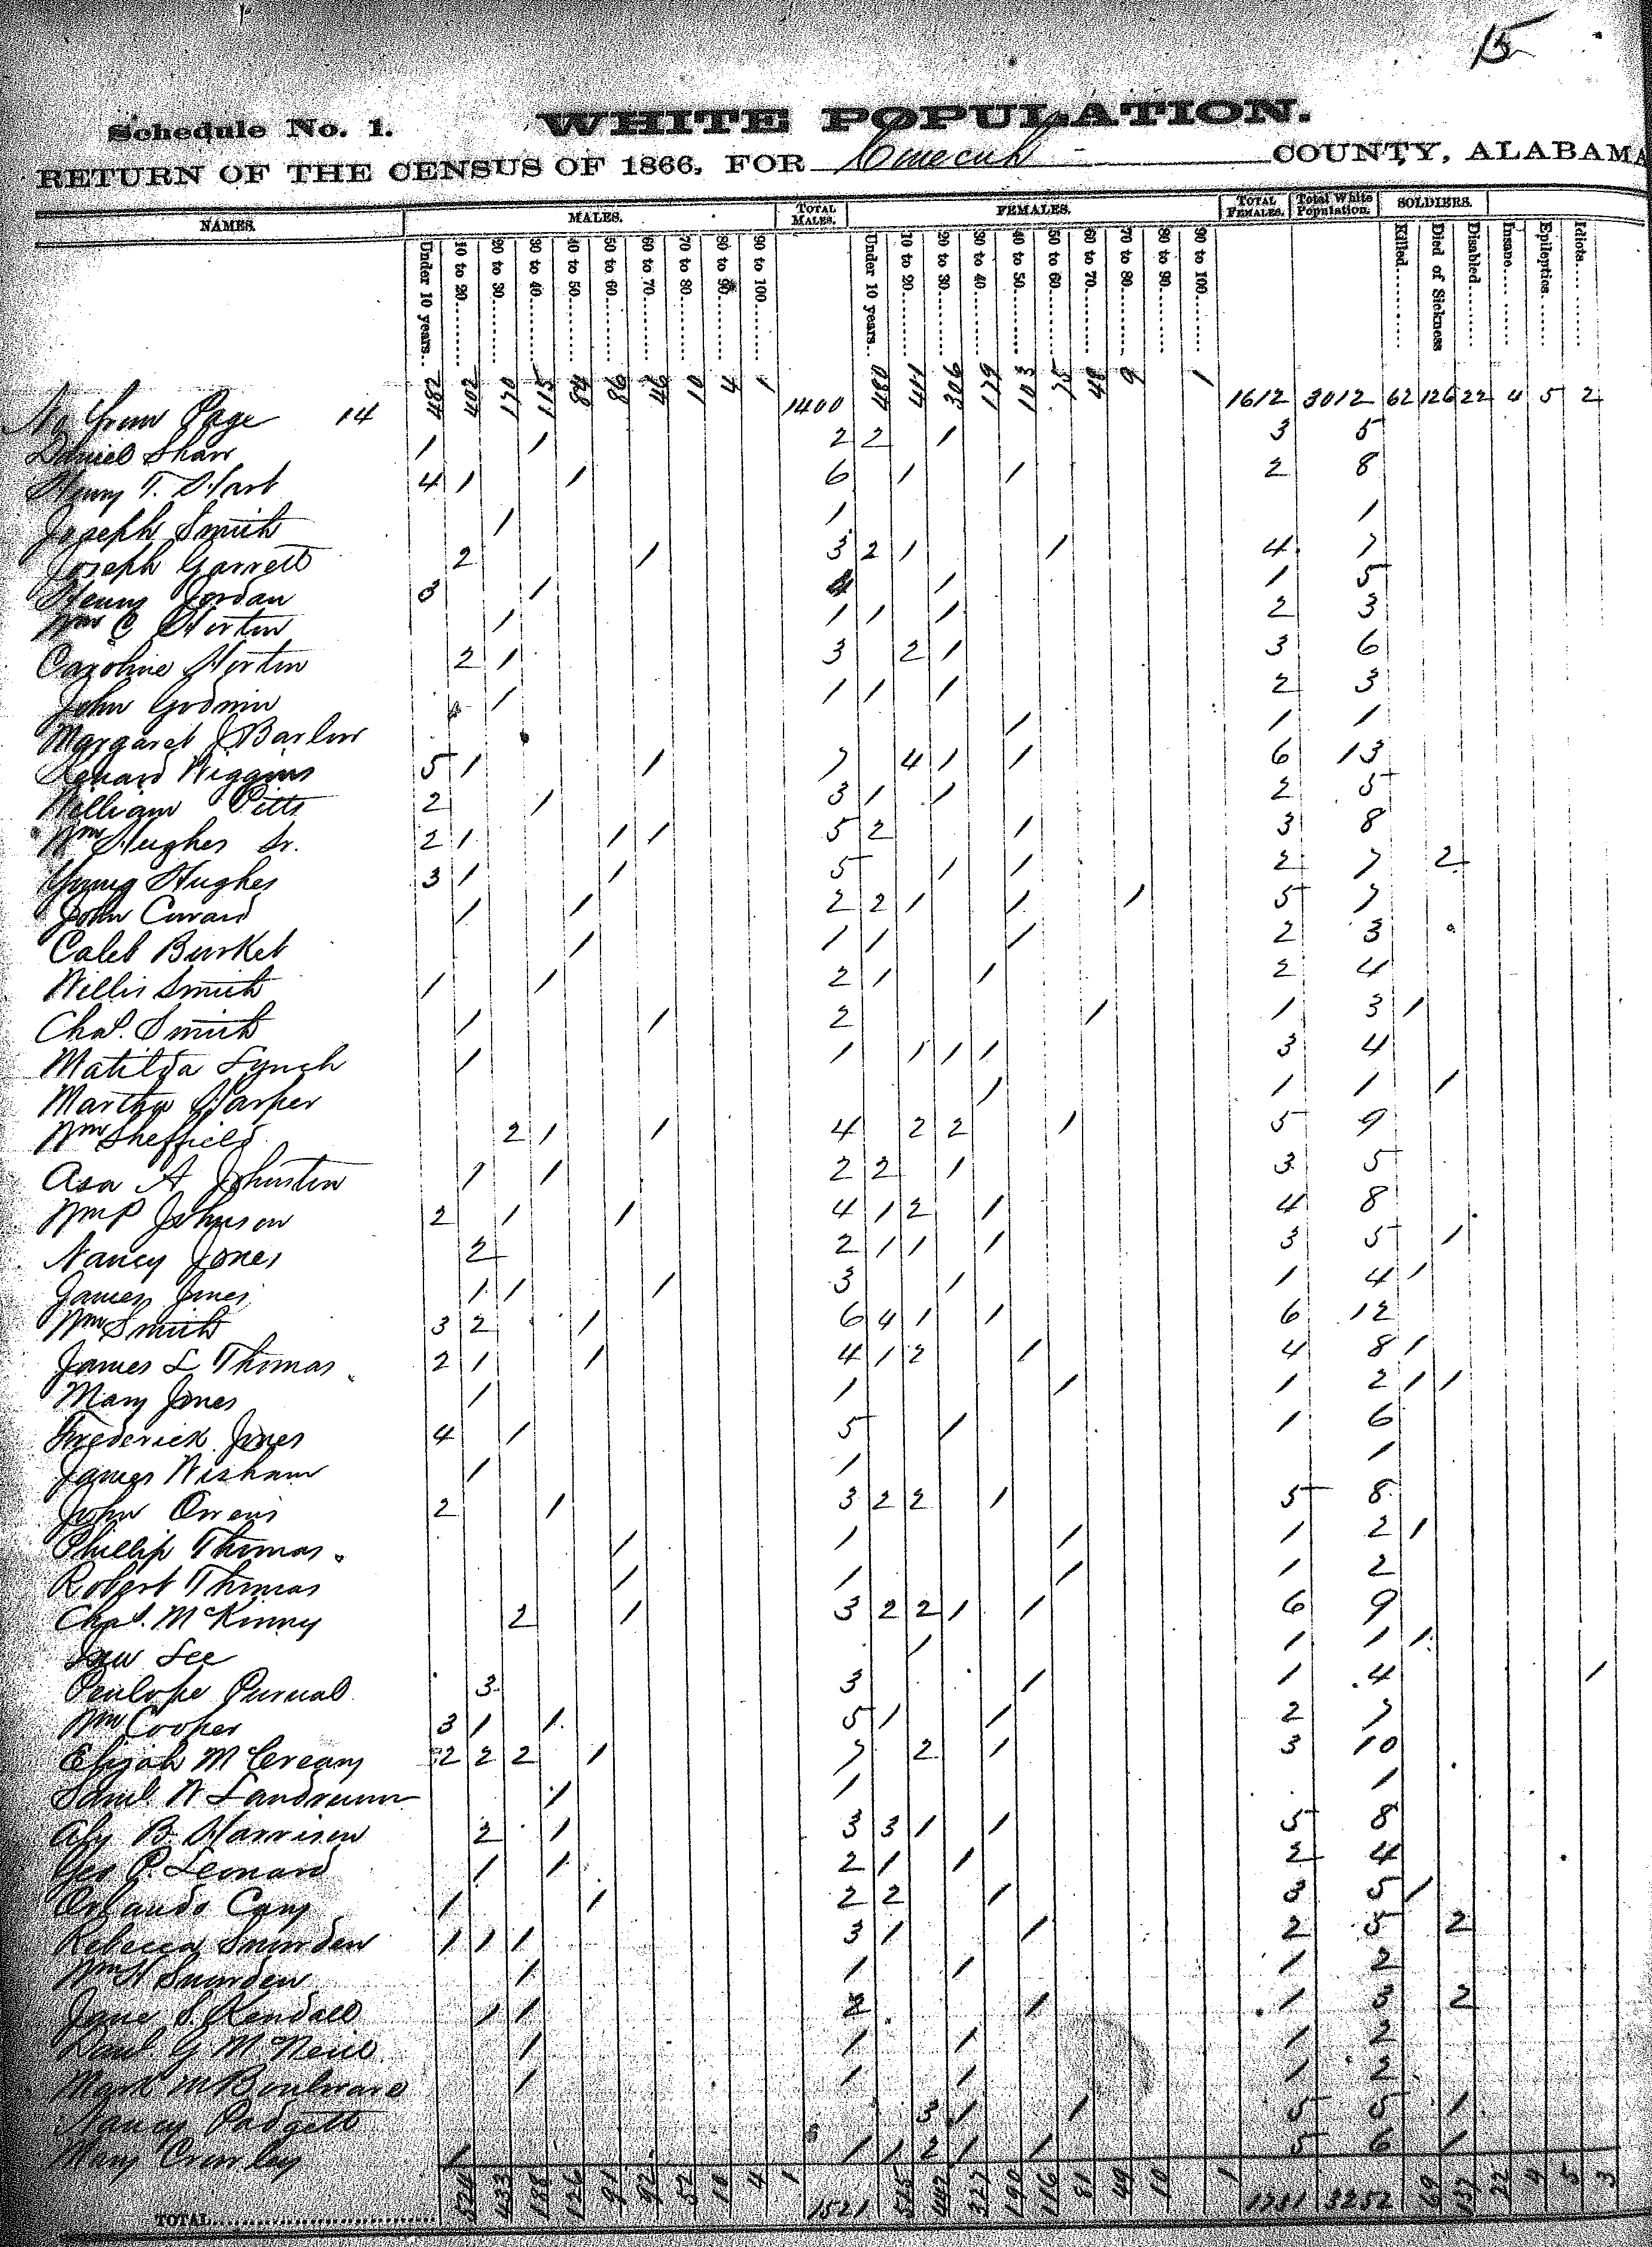 15
Schedule No. 1. WHITE POPULATION.
RETURN OF THE CENSUS OF 1866, FOR Conecuh COUNTY, ALABAMA
NAMES. MALES. TOTAL MALES. FEMALES. TOTAL FEMALES. Total White Population. SOLDIERS.
Under 10 years.. 10 to 20 20 to 30 30 to 40 40 to 50 50 to 60 60 to 70 70 to 80 80 to 90 90 to 100 Under 10 years.. 10 to 20 20 to 30 30 to 40 40 to 50 50 to 60 60 to 70 70 to 80 80 to 90 90 to 100 Killed Died of Sickness Disabled Insane Epileptics Idiots
No from Page 14 482 402 170 115 84 86 46 10 4 1 1400 480 411 306 179 103 75 48 9 1 1612 3012 62 126 22 4 5 2
Daniel Shaw 1 1 2 2 1 3 5
Henry T. Hart 4 1 1 6 1 1 2 8
Joseph Smith 1 1 1
Joseph Garrett 2 1 3 2 1 1 4 7
Henry Jordan 3 1 4 1 1 5
Wm C Horton 1 1 1 1 2 3
Caroline Horton 2 1 3 2 1 3 6
John Godwin 1 1 1 1 2 3
Margaret J Barlow 1 1 1
Wiggins 5 1 1 7 4 1 1 6 13
William Pitts 2 1 3 1 1 2 5
Wm Hughes Sr. 2 1 1 1 5 2 1 3 8
Young Hughes 3 1 1 5 1 1 2 7 2
John Coward 1 1 2 2 1 1 1 5 7
Caleb Burket 1 1 1 1 2 3
Willis Smith 1 1 2 1 1 2 4
Chas. Smith 1 1 2 1 1 3 1
Matilda Lynch 1 1 1 1 1 3 4
Martha Harper 1 1 1 1
Wm Sheffield 2 1 1 4 2 2 1 5 9
Asa A Johnston 1 1 2 2 1 3 5
Wm P Johnson 2 1 1 4 1 2 1 4 8
Nancy Jones 2 2 1 1 1 3 5 1
James Jones 1 1 1 3 1 1 4 1
Wm Smith 3 2 1 6 4 1 1 6 12
James L Thomas 2 1 1 4 1 2 1 4 8 1
Mary Jones 1 1 1 1 2 1 1
Frederick Jones 4 1 5 1 1 6
James Wisham 1 1 1
John Owens 2 1 3 2 2 1 5 8
Phillip Thomas 1 1 1 1 2 1
Robert Thomas 1 1 1 1 2
Chas. McKinny 2 1 3 2 2 1 1 6 9
Lee 1 1 1 1
Penlope Purnal 3 3 1 1 4 1
Wm Cooper 3 1 1 5 1 1 2 7
Elijah McCreary 2 2 2 1 7 2 1 3 10
Saml. W Landrum 1 1 1
B Harrison 2 1 3 3 1 1 5 8
Geo P. Leonard 1 1 2 1 1 2 4
Orlando Cary 1 1 2 2 1 3 5 1
Rebecca Snowden 1 1 1 3 1 1 2 5 2
Wm H Snowden 1 1 1 1 2
Jane S. Kendall 1 1 2 1 1 3 2
Danl. G McNeil 1 1 1 1 2
Mark M Boulware 1 1 1 1 2
Nancy Padgett 3 1 1 5 5 1
Mary Crowley 1 1 1 2 1 1 5 6 1
TOTAL 524 433 188 126 91 92 52 10 4 1 1521 515 442 327 190 116 81 49 10 1 1731 3252 69 137 22 4 5 3